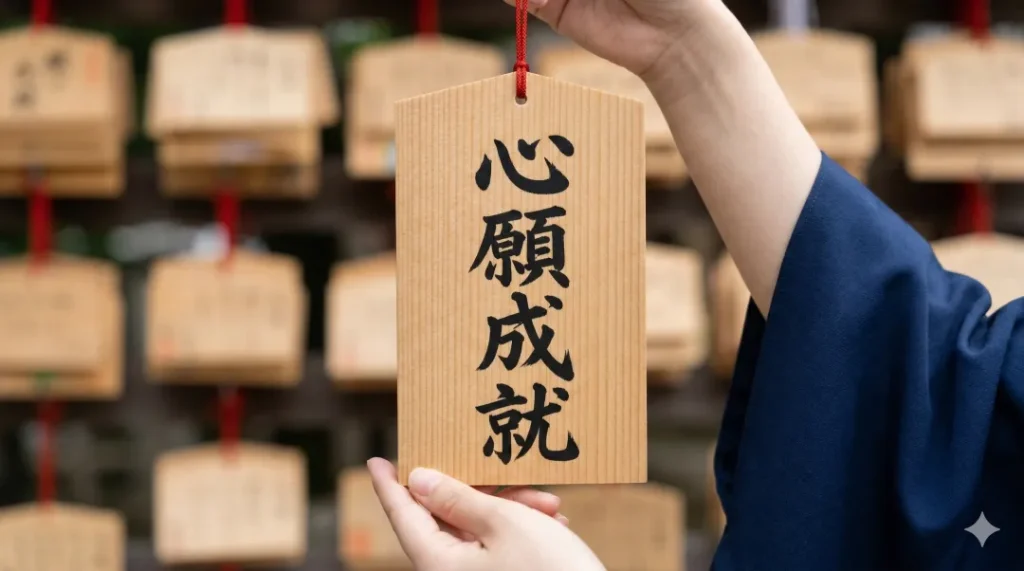 心願成就